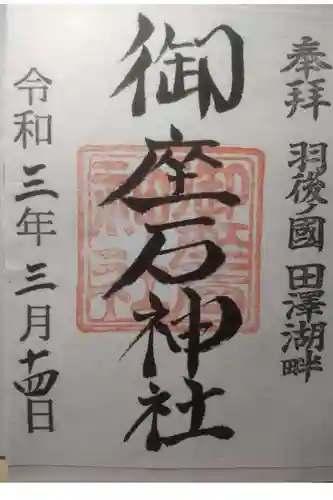 奉拝 羽後ノ國 田澤湖畔
御座石神社
令和三年三月十四日